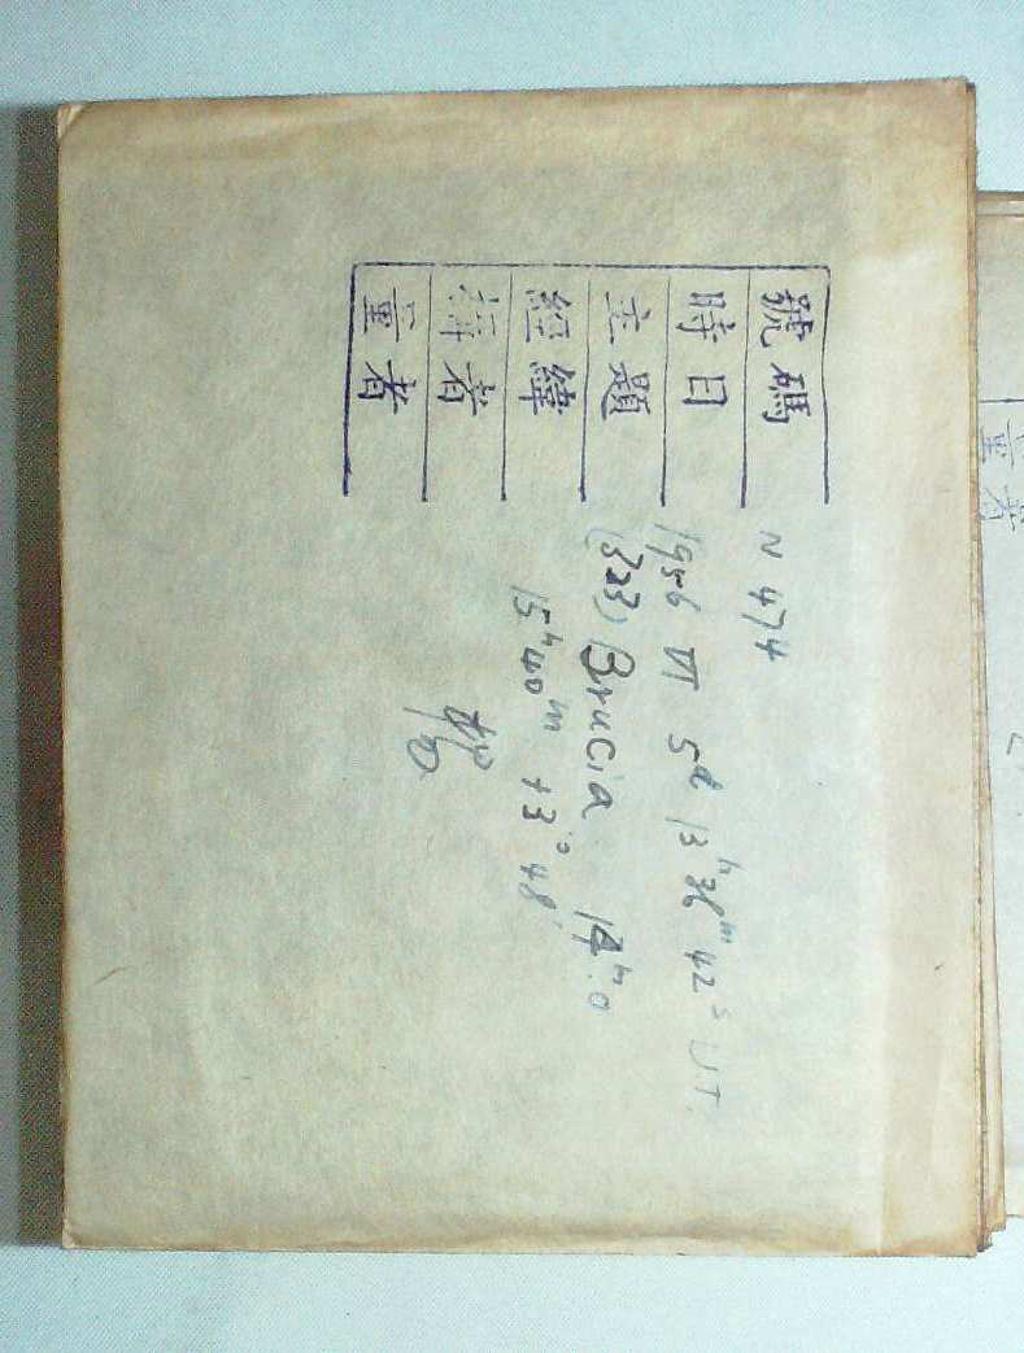 號碼 N 474
時日 1956 VI 5d 13h 36m 42s U.T.
主題 (323) Brucia 14m.0
經緯 15h40m +3°48'
攝者
量者
量者